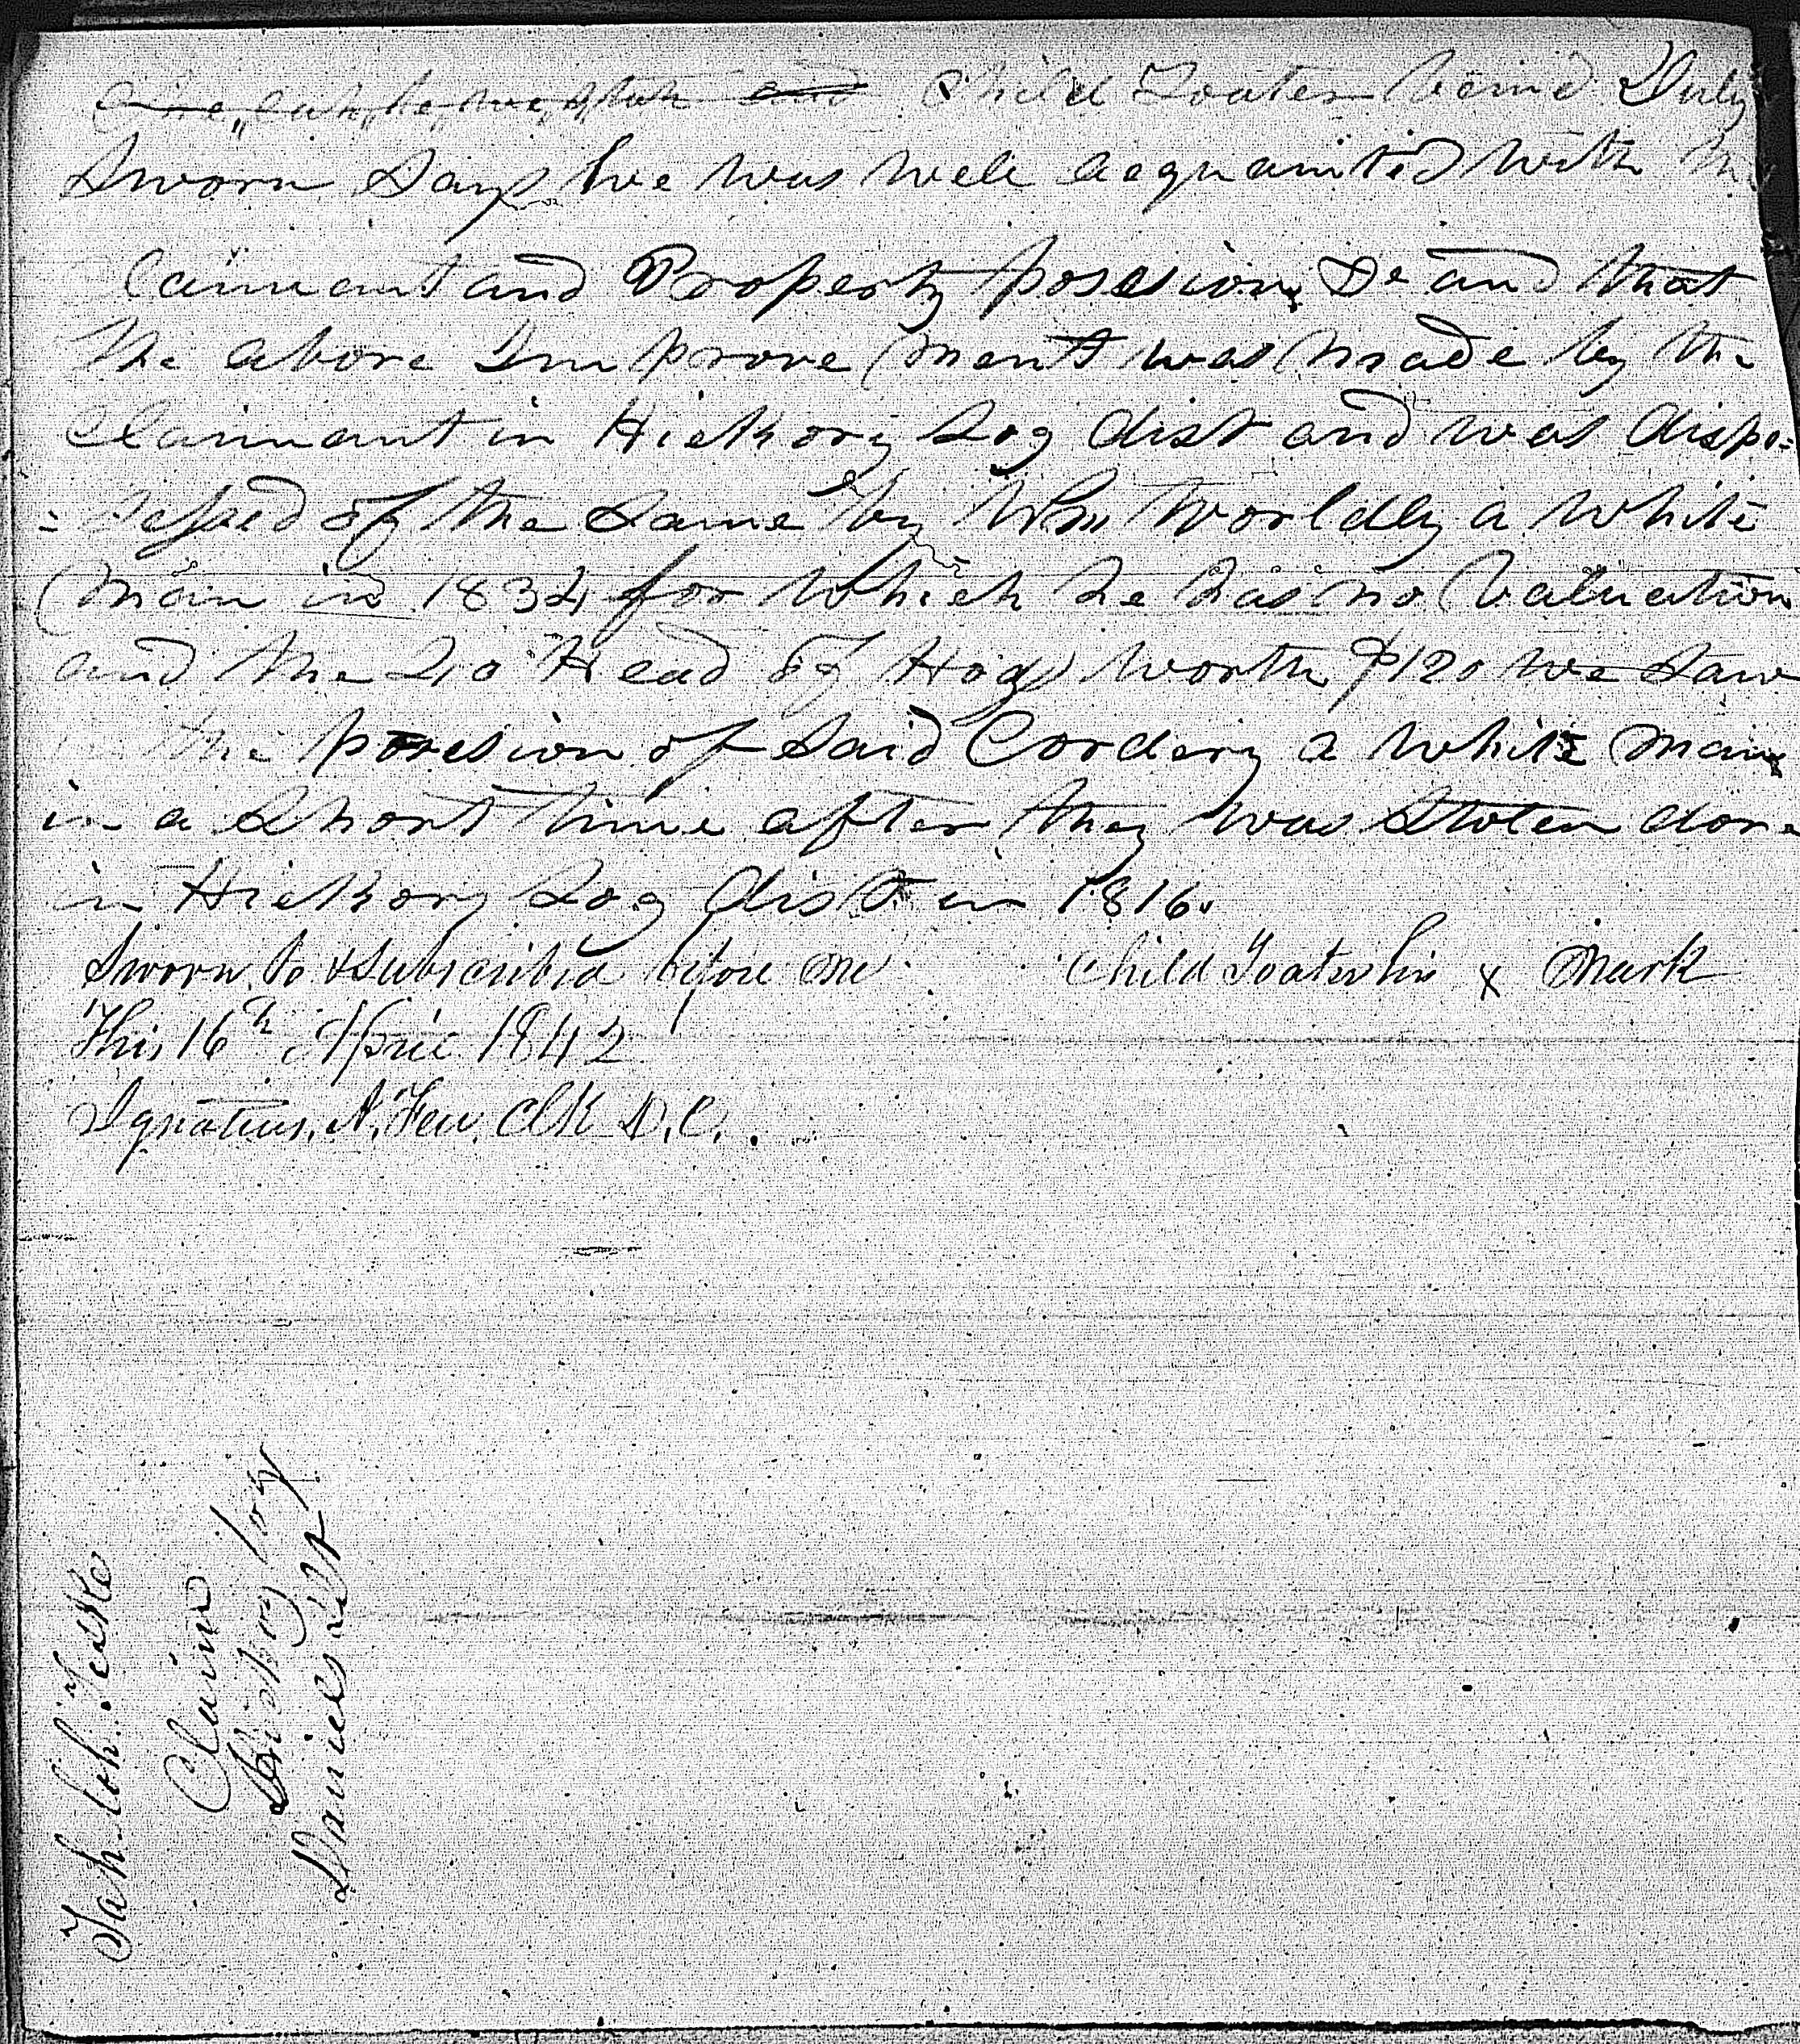 and Child Toater being Duly
Sworn Says he was well acquainted with
Caimant and Property posesion &c and that
the above Improve ment was made by the
Claimant in Hickory Log dist and was dispo=
=sessed of the same by Wm Worldly a white
man in 1834 for which he has no valuation
and the 40 Head of Hogs worth $120 we saw
the posesion of said Cordery a white man
in a short time after they was Stolen don
in Hickory Log dist in 1816.
Sworn to & subscribed before me Child Toater his x mark
This 16th April 1842
Ignatius. A. Few. Clk D.C.
Claim
Hickory log